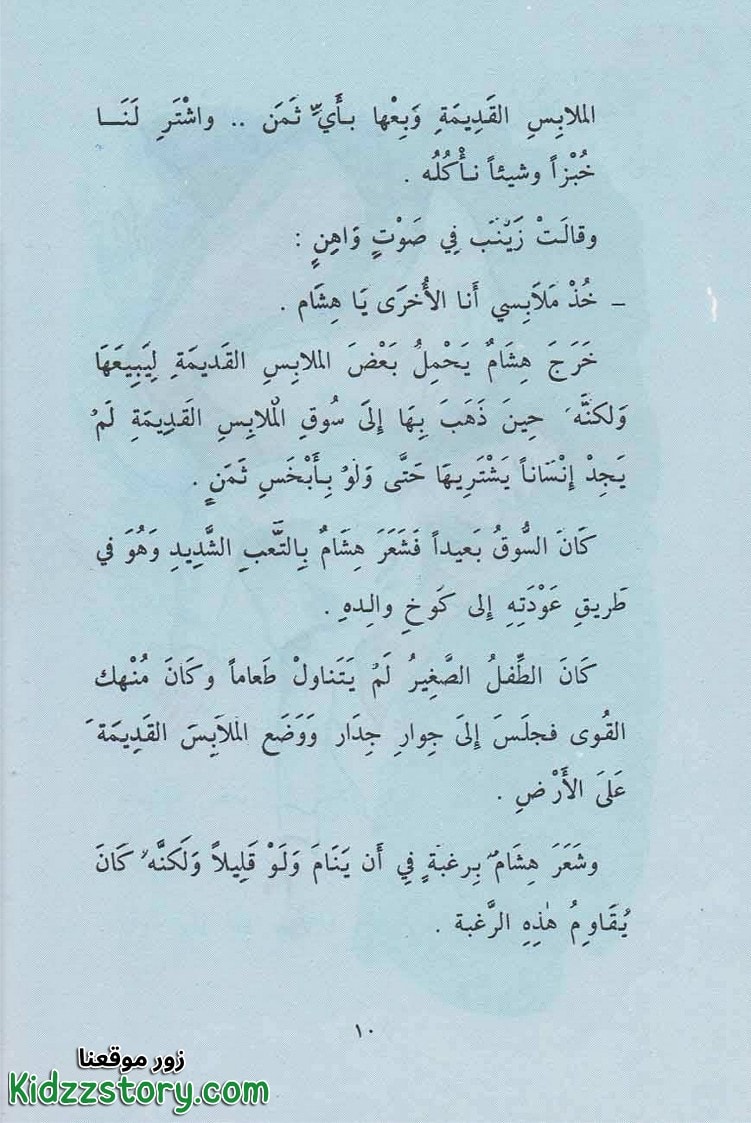 الملابِسِ القَدِيمَةِ وَبِعْها بِأَيِّ ثَمَن .. واشْتَرِ لَنَــا
خُبْزاً وشيئاً نـأْكُلُه .
وقالَتْ زَيْنَب فِي صَوْتٍ وَاهِنٍ :
– خُذْ مَلَابِسي أَنا الأُخرَى يَا هِشَام .
خَرَجَ هِشَامٌ يَحْمِلُ بَعْضَ الملابِسِ القَديمَةِ لِيَبِيعَهَا
وَلكنَّهُ حِينَ ذَهَبَ بِهَا إِلىَ سُوقِ الْملابِسِ القَدِيمَةِ لَمْ
يَجِدْ إِنْسَاناً يَشْتَرِيهَا حَتَّى وَلَوْ بِأَبْخَسِ ثَمَنٍ .
كَانَ السُّوقُ بَعيداً فَشَعَرَ هِشَامٌ بِالتَّعَبِ الشَّدِيدِ وَهُوَ في
طَرِيقِ عَوْدَتِهِ إِلى كَوخِ والِدهِ .
كَانَ الطِّفلُ الصَّغِيرُ لَمْ يَتَناولْ طَعاماً وكَانَ مُنْهك
القُوى فجلَسَ إِلىَ جِوارِ جِدَار وَوَضَع الملاَبِسَ القَدِيمَةَ
عَلَىَ الأَرْضِ .
وشَعَرَ هِشَامٌ بِرغبةٍ فِي أَن يَنَامَ وَلَوْ قَلِيلاً وَلَكنَّهُ كَانَ
يُقَاوِمُ هٰذِهِ الرَّغبة .
١٠
زور موقعنا
Kidzzstory.com